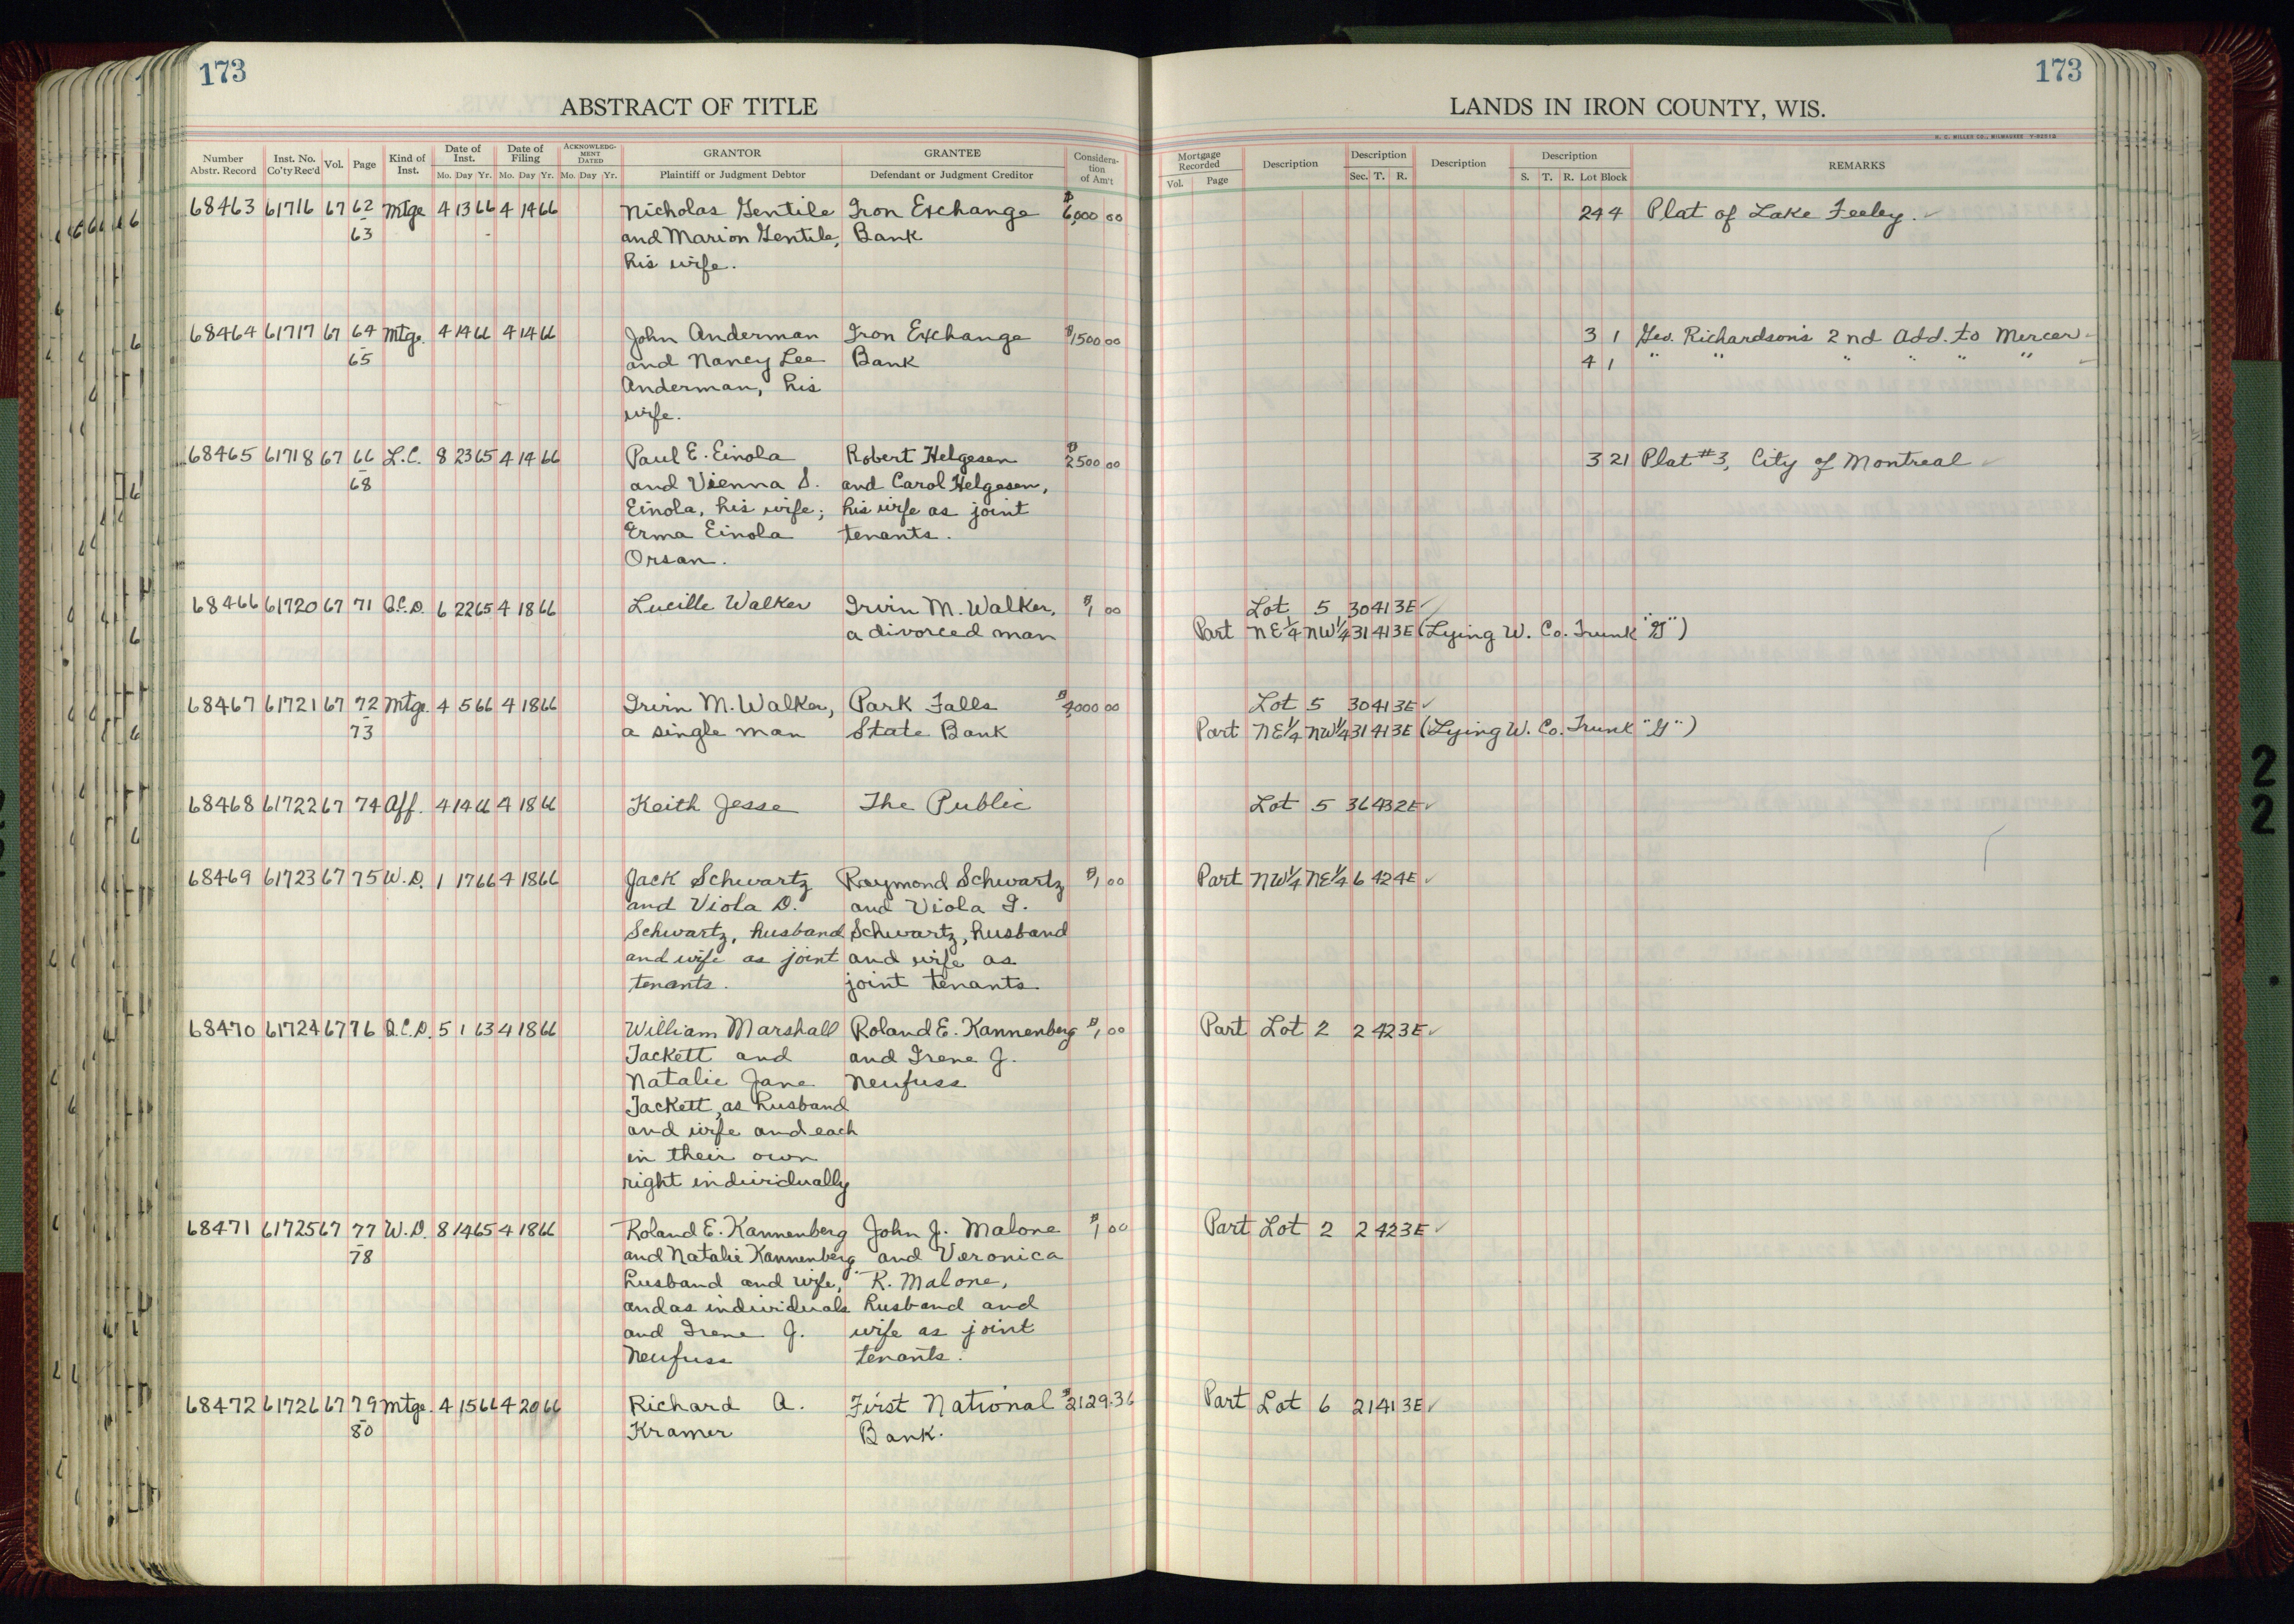 173
173
ABSTRACT OF TITLE
LANDS IN IRON COUNTY, WIS.
H. C. MILLER CO., MILWAUKEE
Number Abstr. Record Inst. No. Co'ty Rec'd Vol. Page Kind of Inst. Date of Inst. Mo. Day Yr. Date of Filing Mo. Day Yr. ACKNOWLEDG-MENT DATED Mo. Day Yr. GRANTOR Plaintiff or Judgment Debtor GRANTEE Defendant or Judgment Creditor Considera-tion of Am't
Mortgage Recorded Vol. Page Description Description Sec. T. R. Description Description S. T. R. Lot Block REMARKS
68463 61716 67 62 Mtge 4 13 66 4 14 66 Nicholas Gentile Iron Exchange $6,000 00 24 4 Plat of Lake Feeley.
63 and Marion Gentile, Bank
his wife.
68464 61717 67 64 Mtge. 4 14 66 4 14 66 John Anderman Iron Exchange $1500 00 3 1 Geo. Richardson's 2nd Add. to Mercer
65 and Nancy Lee Bank 4 1 " " " " " "
Anderman, his
wife.
68465 61718 67 66 L.C. 8 23 65 4 14 66 Paul E. Einola Robert Helgesen $2500 00 3 21 Plat #3, City of Montreal
68 and Vienna S. and Carol Helgesen,
Einola, his wife; his wife as joint
Erma Einola tenants.
Orsan.
68466 61720 67 71 Q.C.D. 6 22 65 4 18 66 Lucille Walker Irvin M. Walker, $1 00 Lot 5 30 41 3E
a divorced man Part NE1/4 NW1/4 31 41 3E (Lying W. Co. Trunk "G")
68467 61721 67 72 Mtge. 4 5 66 4 18 66 Irvin M. Walker, Park Falls $4000 00 Lot 5 30 41 3E
73 a single man State Bank Part NE1/4 NW1/4 31 41 3E (Lying W. Co. Trunk "G")
68468 61722 67 74 Aff. 4 14 66 4 18 66 Keith Jesse The Public Lot 5 36 43 2E
68469 61723 67 75 W.D. 1 17 66 4 18 66 Jack Schwartz Raymond Schwartz $1 00 Part NW1/4 NE1/4 6 42 4E
and Viola D. and Viola I.
Schwartz, husband Schwartz, husband
and wife as joint and wife as
tenants. joint tenants
68470 61724 67 76 Q.C.D. 5 1 63 4 18 66 William Marshall Roland E. Kannenberg $1 00 Part Lot 2 2 42 3E
Jackett and and Irene J.
Natalie Jane Neufuss
Jackett, as husband
and wife and each
in their own
right individually
68471 61725 67 77 W.D. 8 14 65 4 18 66 Roland E. Kannenberg John J. Malone $1 00 Part Lot 2 2 42 3E
78 and Natalie Kannenberg and Veronica
husband and wife, R. Malone,
and as individuals husband and
and Irene J. wife as joint
Neufuss tenants.
68472 61726 67 79 Mtge. 4 15 66 4 20 66 Richard A. First National $2129.36 Part Lot 6 21 41 3E
80 Kramer Bank.
2
2